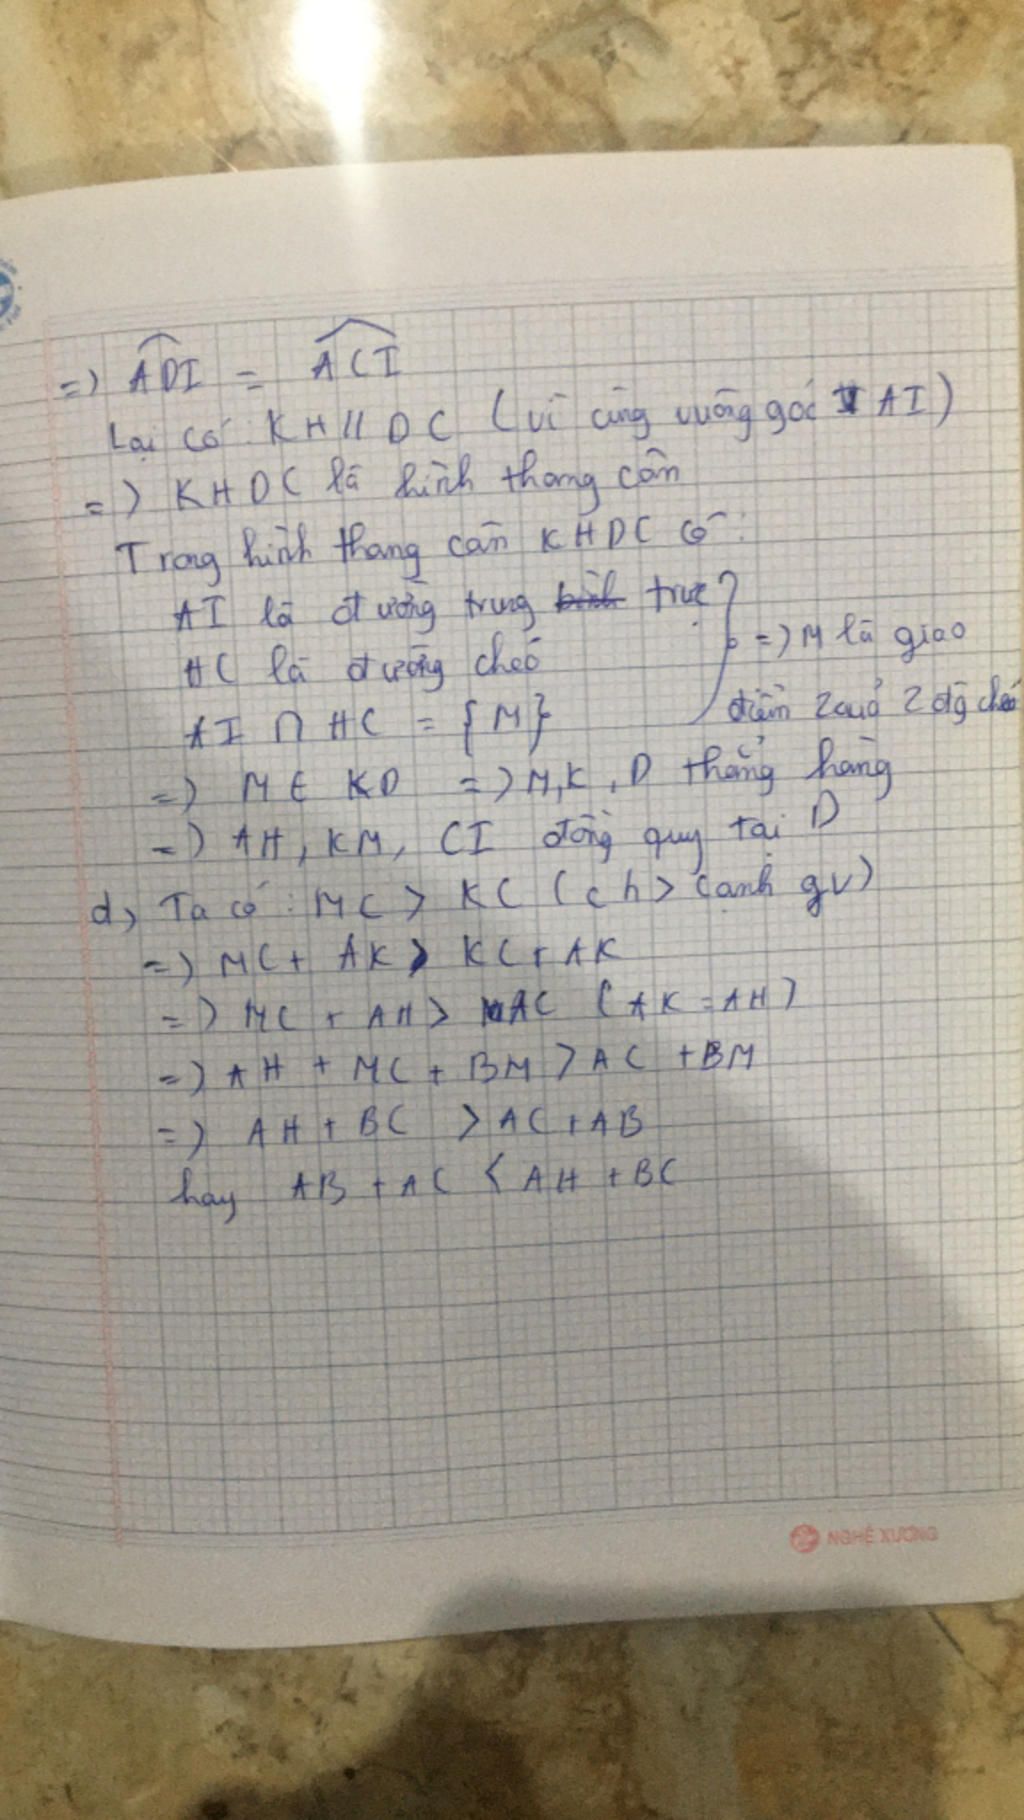 =) ADI = ACI
Lại có: KH // DC (vì cùng vuông góc AI)
=) KHDC là hình thang cân
Trong hình thang cân KHDC có:
AI là đường trung trực
HC là đường chéo
AI ∩ HC = {M}
=) M là giao
điểm của 2 đg chéo
=) M ∈ KD =) M, K, D thẳng hàng
=) AH, KM, CI đồng quy tại D
d) Ta có: MC > KC (ch > cạnh gv)
=) MC + AK > KC + AK
=) MC + AH > AC (AK = AH)
=) AH + MC + BM > AC + BM
=) AH + BC > AC + AB
hay AB + AC < AH + BC
NGHÊ XƯƠNG